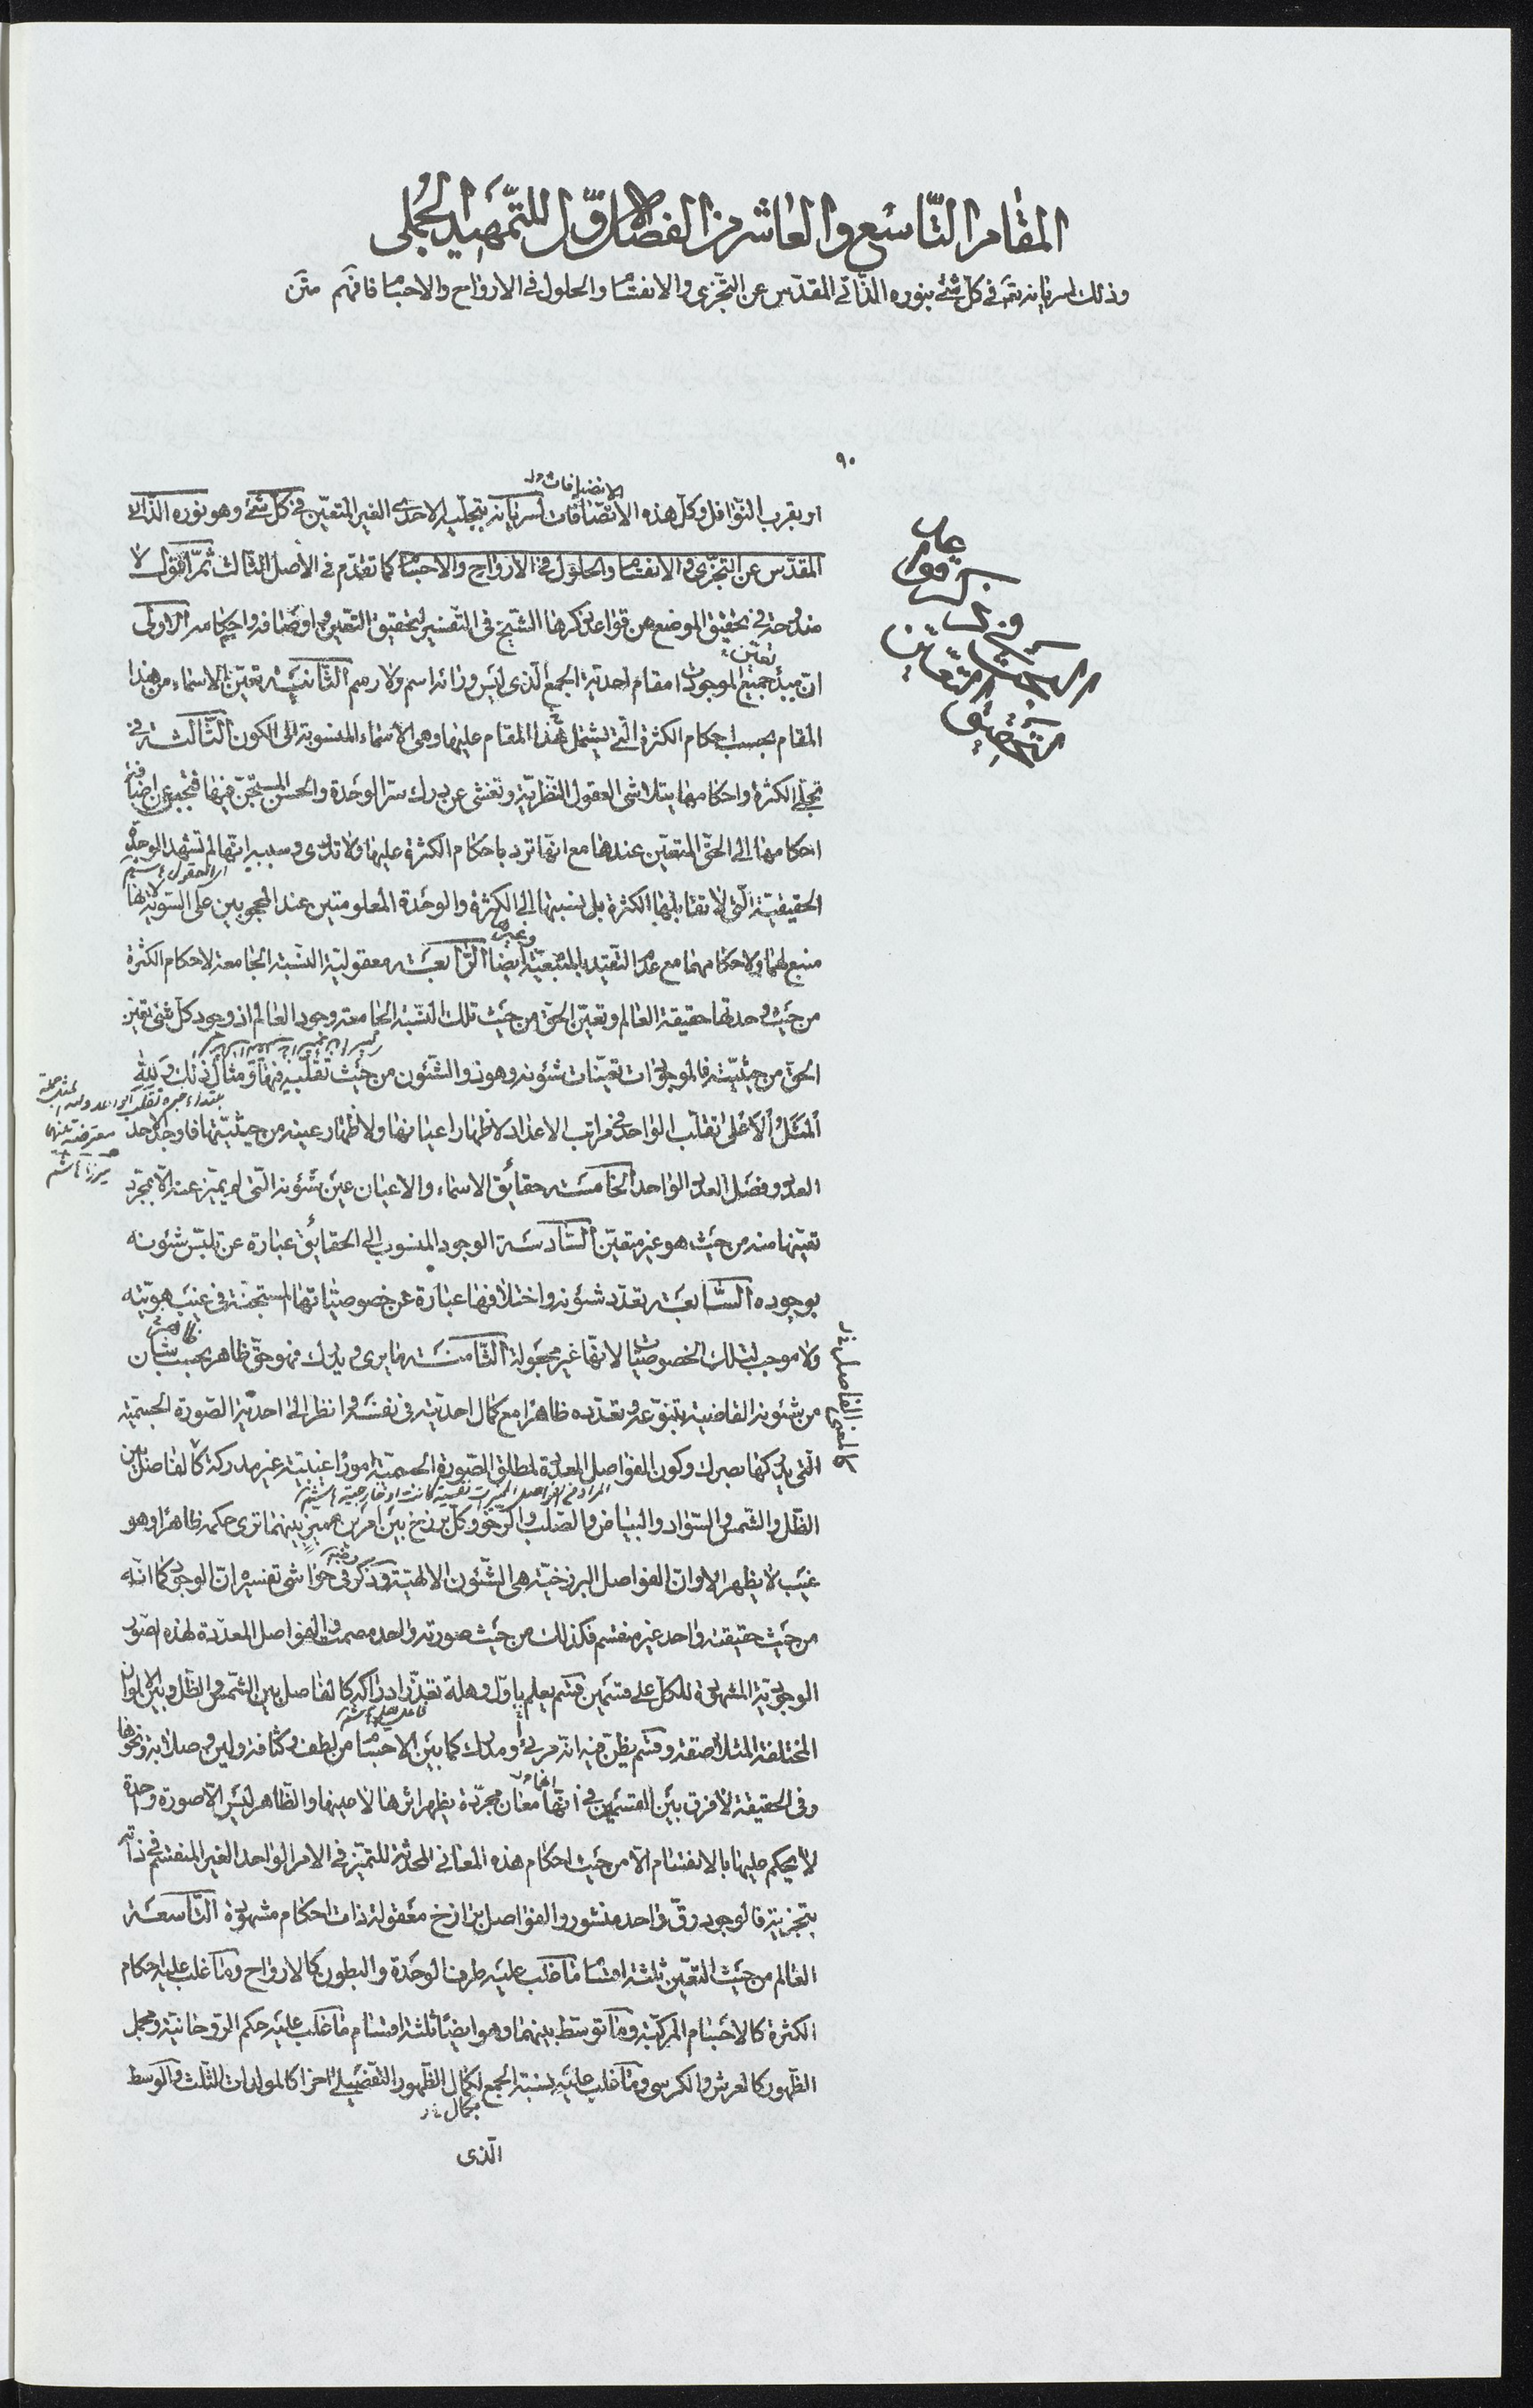 المقام التّاسع والعاشر من الفصل الاوّل للتّمهيد الجملى
وذلك لسريانه تعم فى كلّ شئ بنوره الذّاتى المقدّس عن التّجزى والانقسام والحلول فى الارواح والاجسام فافهم متن
٩٠
الانضيافات ول
او بقرب النّوافل وكلّ هذه الاتّصافات لسريانه بتجلّيه الاحدى الغير المتعيّن فى كلّ شئ وهو نوره الذّاتى
المقدّس عن التّجزّى والانقسام والحلول فى الارواح والاجسام كما تقدّم فى الأصل الثالث ثمّ اقول لا
مندوحة فى تحقيق الموضع من قواعد ذكرها الشّيخ فى التّفسير لتحقيق التّعين واوصافه واحكامه الاولى
تعيّن
انّ مبدأ جميع الموجودات مقام احديّة الجمع الّذى ليس ورائه اسم ولا رسم الثّانيّة تعيّن الاسماء من هذا
المقام بحسب احكام الكثرة الّتى يشتمل هذا المقام عليها وهى الاسماء المنسوبة الى الكون الثّالثة فى
تجلّى الكثرة واحكامها يتلاشى العقول النّظريّة وتغشى عن درك سرّ الوحدة والحسن المستجنّ فيها فتجبن عن اضافة
احكامها الى الحقّ المتعيّن عندها مع انّها ترد باحكام الكثرة عليها ولا تدرى وسببه انّها لم تشهد الوحدة
اى العقول هاشم
الحقيقيّة الّتى لا تقابلها الكثرة بل نسبتها الى الكثرة والوحدة المعلومتين عند المحجوبين على السّوية لانها
منبع لهما ولاحكامهما مع عدم التقيّد بالمنبعيّة ايضا الرّابعة معقوليّة النّسبة الجامعة لاحكام الكثرة
وغيرها
من حيث وحدتها حقيقة العالم وتعيّن الحقّ من حيث تلك النّسبة الجامعة وجود العالم اذ وجود كلّ شئ تعيّن
الحقّ من حيثيّته فالموجودات تعيّنات شئونه وهو ذو الشّئون من حيث تقلّبه فيها ومثال ذلك وَلِلّهِ
اَلمَثَلُ الاَعلى تقلّب الواحد فى مراتب الاعداد لاظهار اعيانها ولاظهار عينه من حيثيّتها فاوجد الواحد
معترضة بينها
ميرزا هاشم
العدد وفصّل العدد الواحد الخامسة حقايق الاسماء والاعيان عين شئونه الّتى لم يتميّز عنه الّا بمجرّد
تعيّنها منه من حيث هو غير متعيّن السّادسة الوجود المنسوب الى الحقائق عبارة عن تلبّس شئونه
بوجوده السّابعة تعدّد شئونه واختلافها عبارة عن خصوصيّاتها المستجنّة فى غيب هويّته
ولا موجب لتلك الخصوصيّات لانّها غير مجعولة الثّامنة ما يرى ويدرك فهو حقّ ظاهر بحسب شان
من شئونه القاضية بتنوّعه وتعدّده ظاهرا مع كمال احديّته فى نفسه وانظر الى احديّة الصّورة الجسميّة
الّتى يدركها بصرك وكون الفواصل المعدّدة لمطلق الصّورة الجسميّة امورا غيبيّة غير مدركة كالفاصل بين
كالمعنى الفاصل خ ل
الظّل والشّمس والسّواد والبياض والصّلب والرّخو وكلّ برزخ بين امرين مميز بينهما ترى حكمه ظاهرا وهو
غيب لا يظهر الا وانّ الفواصل البرزخيّة هى الشّئون الالهيّة وذكر فى حواشى تفسيره انّ الوجود كما انّه
من حيث حقيقته واحد غير منقسم فكذلك من حيث صورته واحد مصمت والفواصل المعدّدة لهذه الصّور
الوجوديّة المشهودة للكلّ على قسمين قسم يعلم باوّل وهلة تعذّر ادراكه كالفاصل بين الشّمس والظّل وبين الالوان
المختلفة المتلاصقة وقسم يظنّ فيه انّه مرئى ومدرك كما بين الاجسام من لطف وكثافة ولين وصلابة ونحوها
وفى الحقيقة لا فرق بين القسمين فى انّها معان مجرّدة يظهر اثرها لا عينها والظّاهر ليس الّا صورة واحدة
لا يحكم عليها بالانقسام الّا من حيث احكام هذه المعانى المحدثة للتميّز فى الامر الواحد الغير المنقسم فى ذاته
بتجزية فالوجود رقّ واحد منشور والفواصل برازخ معقولة ذات احكام مشهودة التّاسعة
العالم من حيث التّعيّن ثلثة اقسام ما غلب عليه طرف الوحدة والبطون كالارواح وما غلب عليه احكام
الكثرة كالاجسام المركّبة وما توسّط بينهما وهو ايضا ثلثة اقسام ما غلب عليه حكم الرّوحانيّة ومجمل
الظّهور كالعرش والكرسى وما غلب عليه نسبة الجمع لكمال الظّهور التّفصيلى اخرا كالمولدات الثّلث والوسط
بكمال خ ل
الّذى